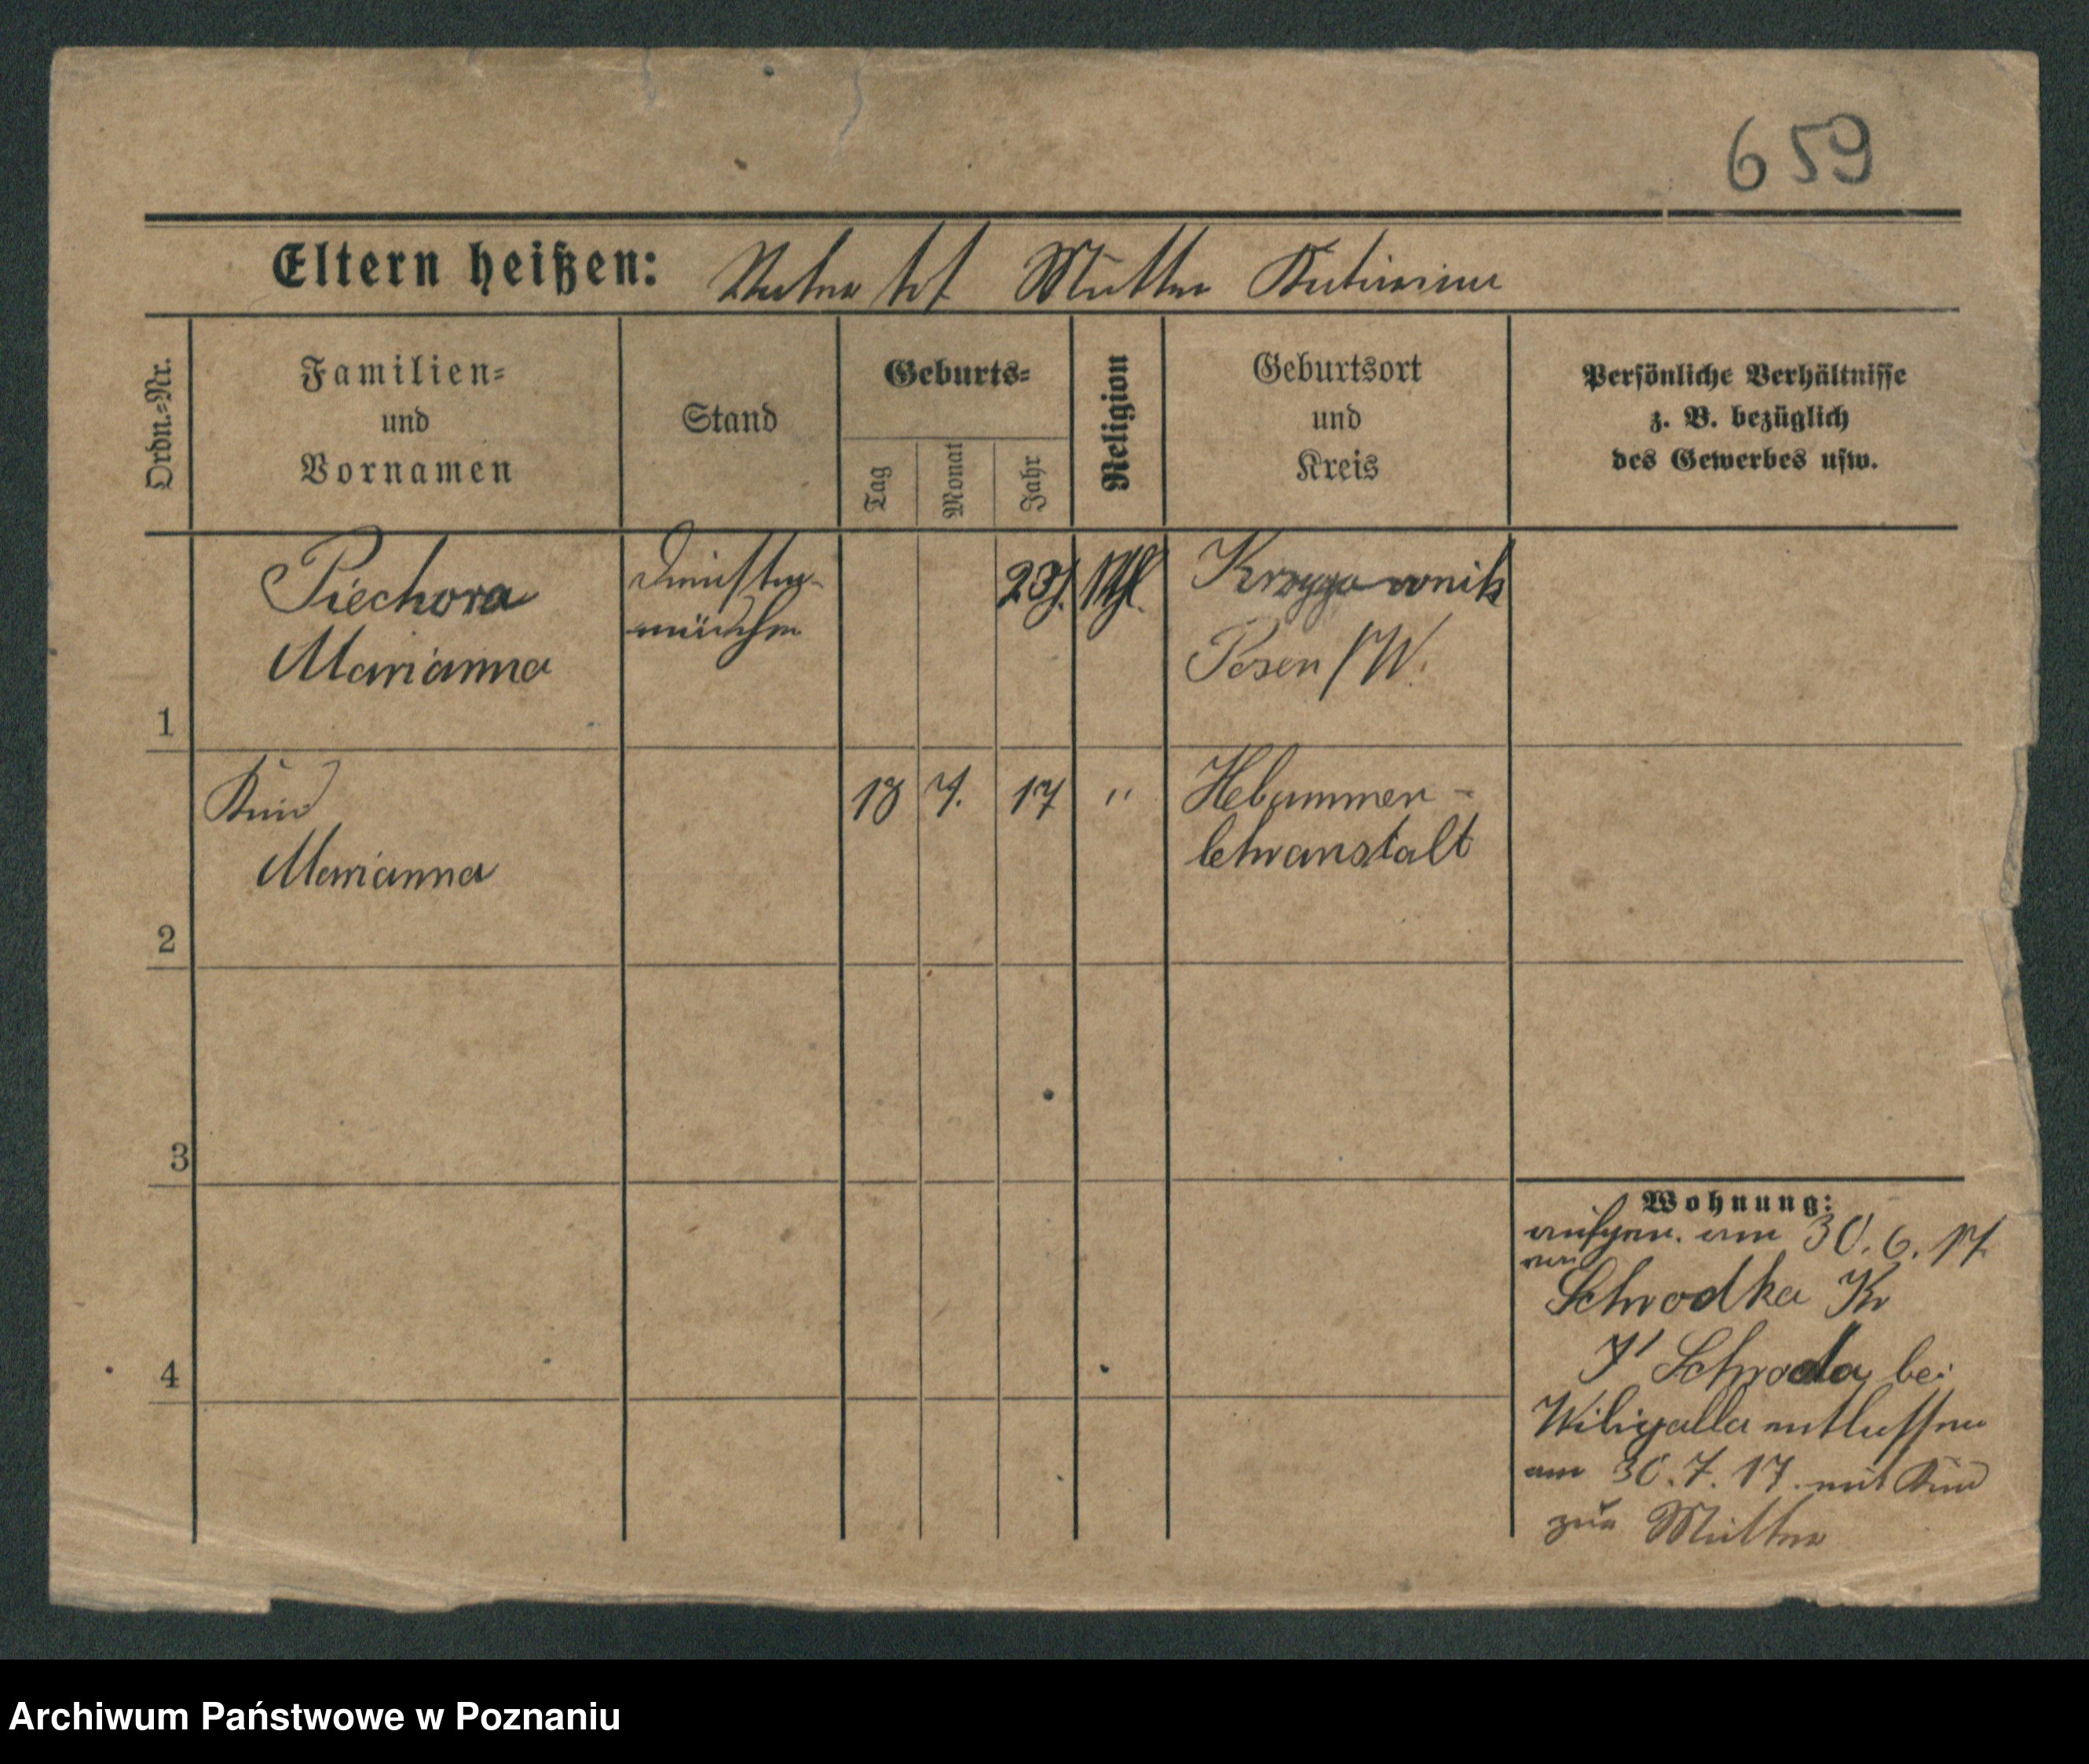 659
Eltern heißen: Vater tot Mutter Katarina
Ordn.=Nr.
Familien=
und
Vornamen
Stand
Geburts=
Tag
Monat
Jahr
Religion
Geburtsort
und
Kreis
Persönliche Verhältnisse
z. B. bezüglich
des Gewerbes usw.
1
Piechora
Marianna
Dienst
mädchen
23J.
Kth.
Posen /W.
2
Kind
Marianna
18 7. 17 "
Hebammen-
lehranstalt
3
4
Wohnung:
aufgen. am 30. 6. 17.
von
Schrodka Kr
Schroda bei
Wiligalla entlassen
am 30. 7. 17. mit Kind
zur Mutter
Archiwum Państwowe w Poznaniu